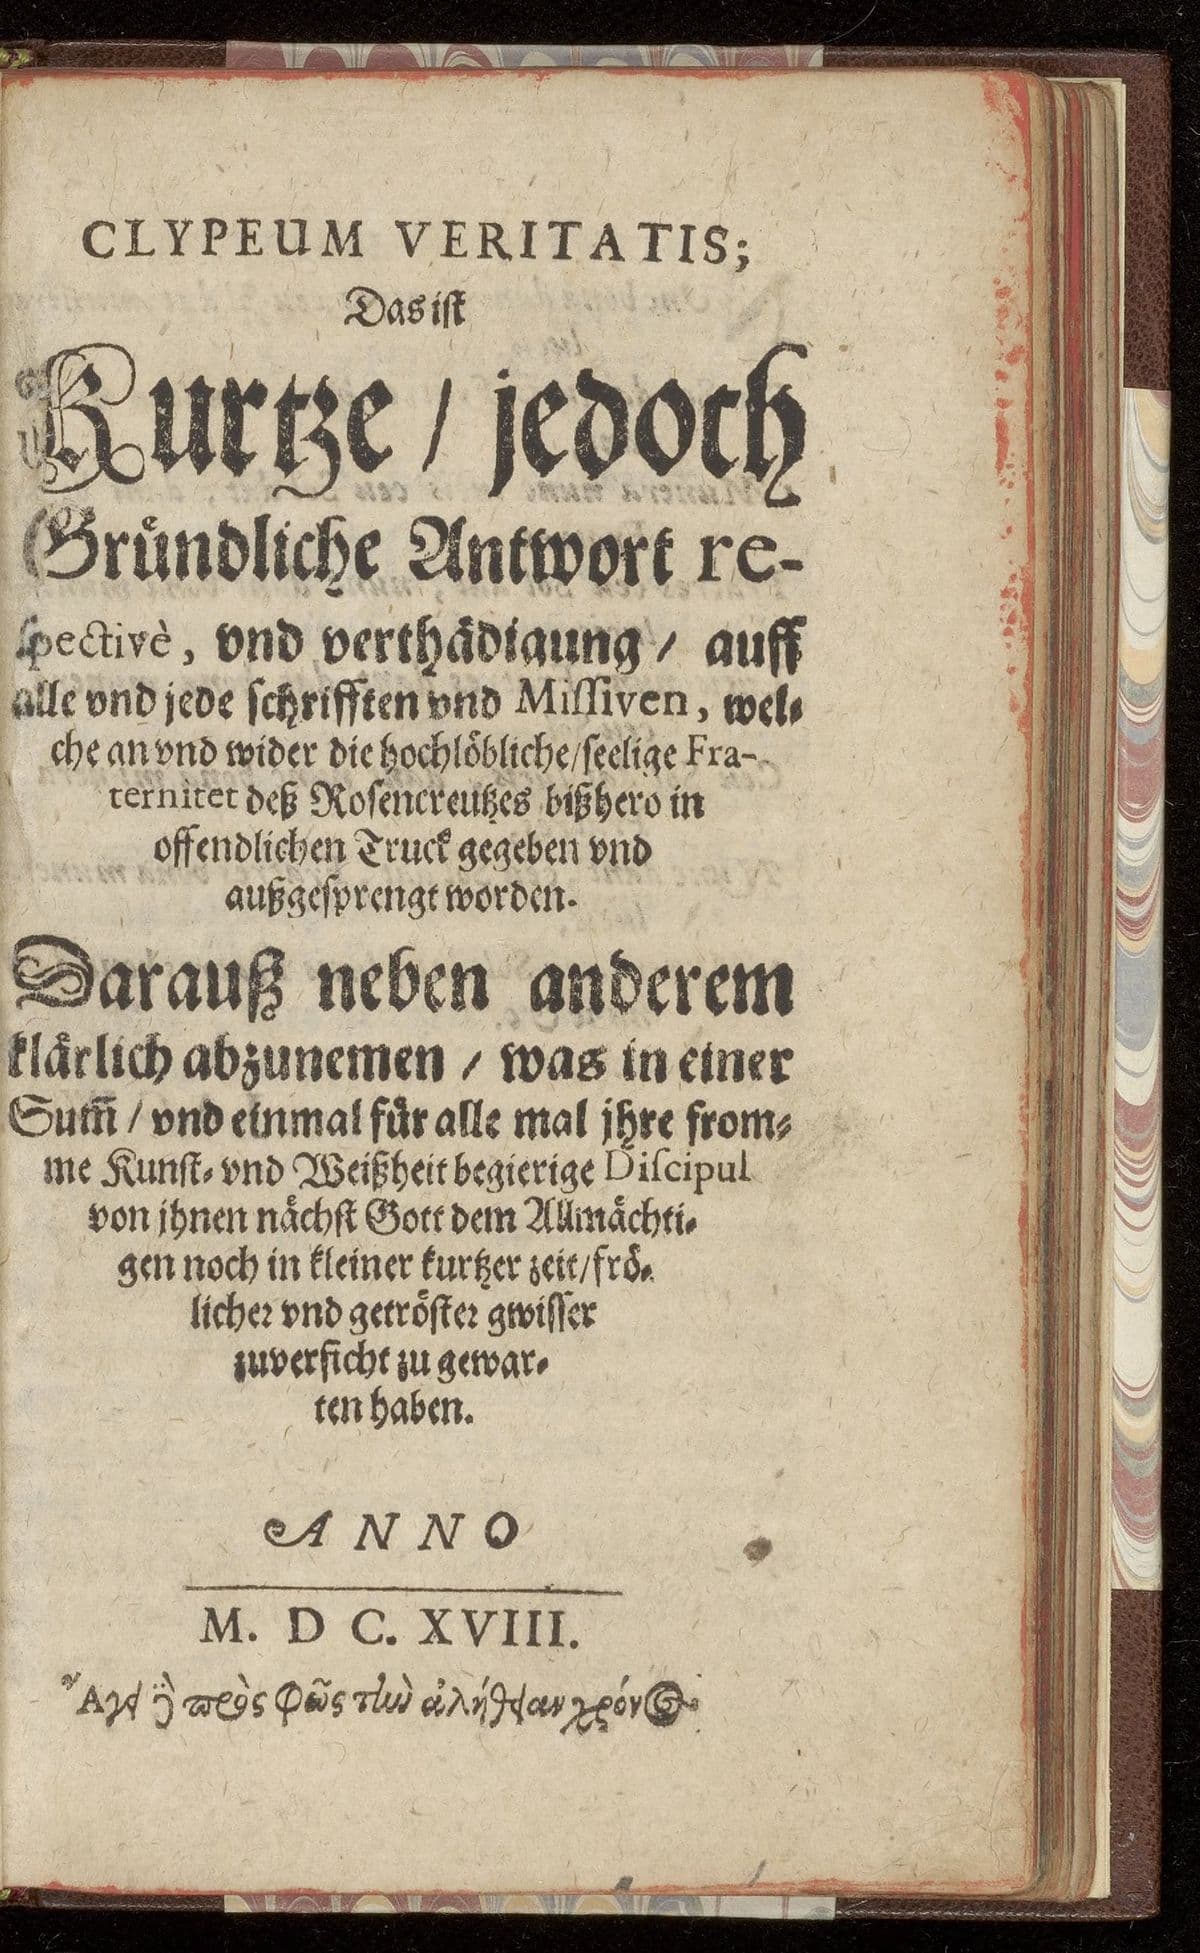 CLYPEUM VERITATIS;
Das ist
Kurtze / jedoch
Gründliche Antwort re-
spectivè, vnd verthädigung / auff
alle vnd jede schrifften vnd Missiven, wel-
che an vnd wider die hochlöbliche/seelige Fra-
ternitet deß Rosencreutzes bißhero in
offendlichen Truck gegeben vnd
außgesprengt worden.
Darauß neben anderem
klärlich abzunemen / was in einer
Sum̄ / vnd einmal für alle mal jhre from-
me Kunst- vnd Weißheit begierige Discipul
von jhnen nächst Gott dem Allmächti-
gen noch in kleiner kurtzer zeit/frö-
licher vnd getröster gwisser
zuversicht zu gewar-
ten haben.
ANNO
M. D C. XVIII.
Ἄγει πρὸς φῶς τὴν ἀλήθειαν χρόνος